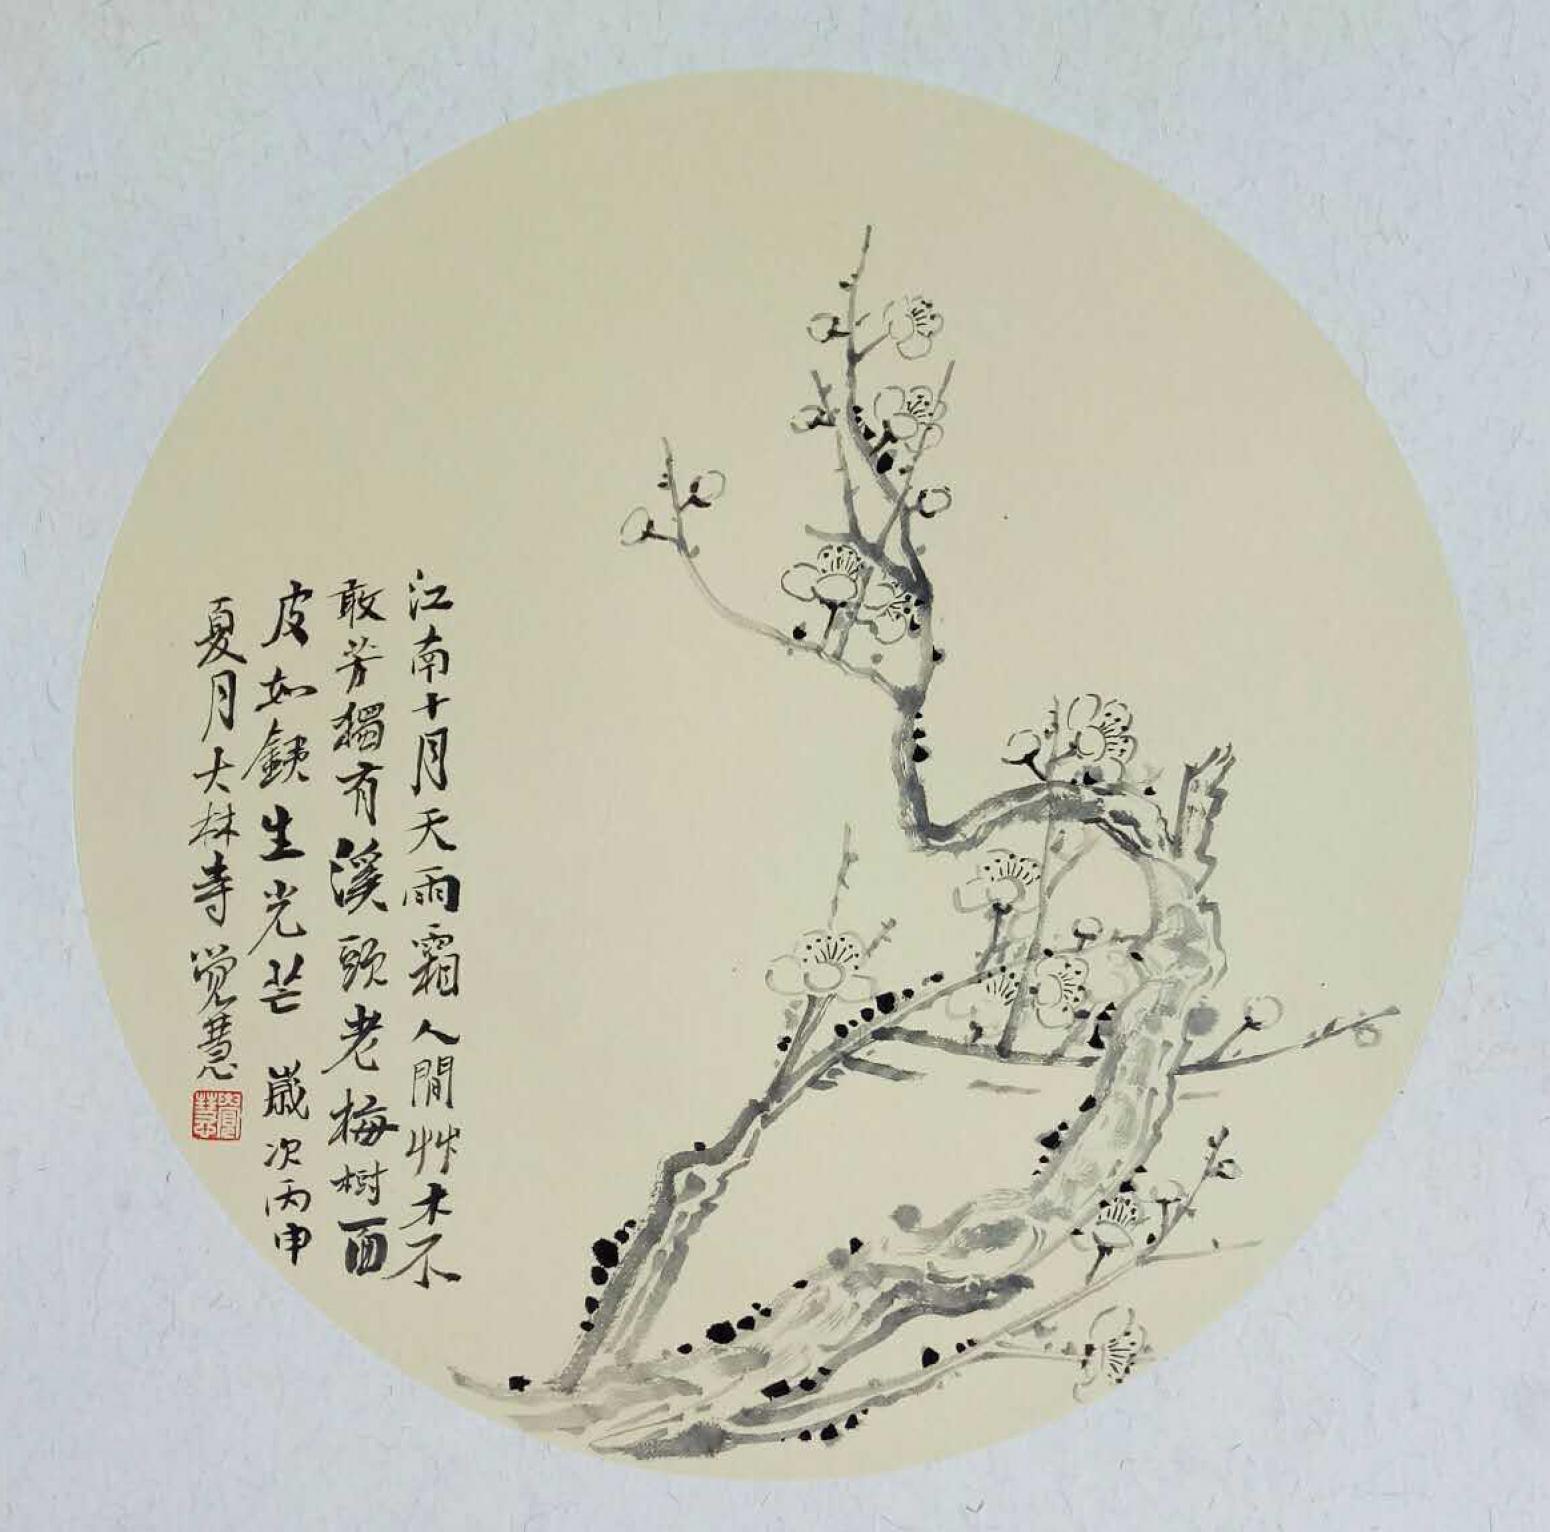 江南十月天雨霜人間艸木不
敢芳獨有溪頭老梅樹面
皮如銕生光芒 歲次丙申
夏月大林寺觉慧
覺慧